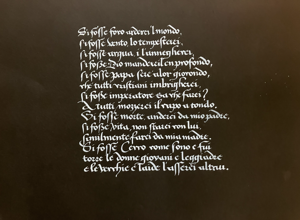 Si fosse foco arderei l mondo,
si fosse vento lo tempesterei,
si fosse acqua i l'annegherei,
si fosse Dio manderei en profondo,
si fosse papa serei alor giocondo,
che tutti cristiani imbrigherei,
si fosse imperatore sa che farei?
A tutti mozzerei il capo a tondo.
Si fosse morte, anderei da mio padre,
si fosse vita, non starei con lui,
similmente farei da mia madre.
Si fosse Cecco come sono e fui
torrei le donne giovani e leggiadre
e le vecchie e laide lasserei altrui.